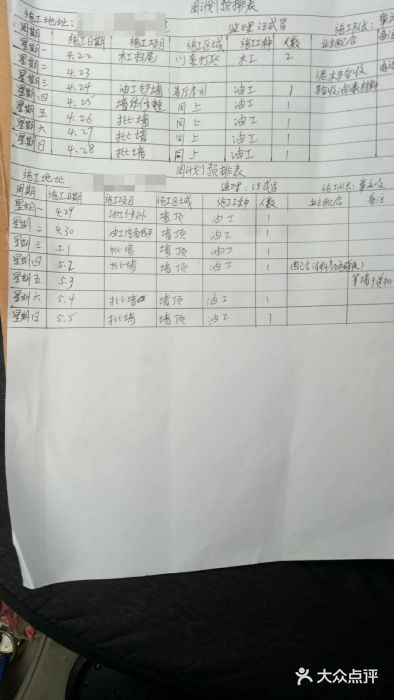 周计划预排表
施工地址: 监理 施工队长:
周期 施工日期 施工项目 施工区域 施工工种 人数 业主配合 备注
星期一 4.22 木工扫尾 木工 2
星期二 4.23
星期三 4.24 油工铲墙 油工 1
星期四 4.25 同上 油工 1
星期五 4.26 批墙 同上 油工 1
星期六 4.27 批墙 同上 油工 1
星期日 4.28 批墙 同上 油工 1
周计划预排表
施工地址 监理: 施工队长:
周期 施工日期 施工项目 施工区域 施工工种 人数 业主配合 备注
星期一 4.29 墙顶 油工 1
星期二 4.30 墙顶 油工 1
星期三 5.1 批墙 墙顶 油工 1
星期四 5.2 批墙 墙顶 油工 1
星期五 5.3
星期六 5.4 批墙 墙顶 油工 1
星期日 5.5 批墙 墙顶 油工 1
大众点评